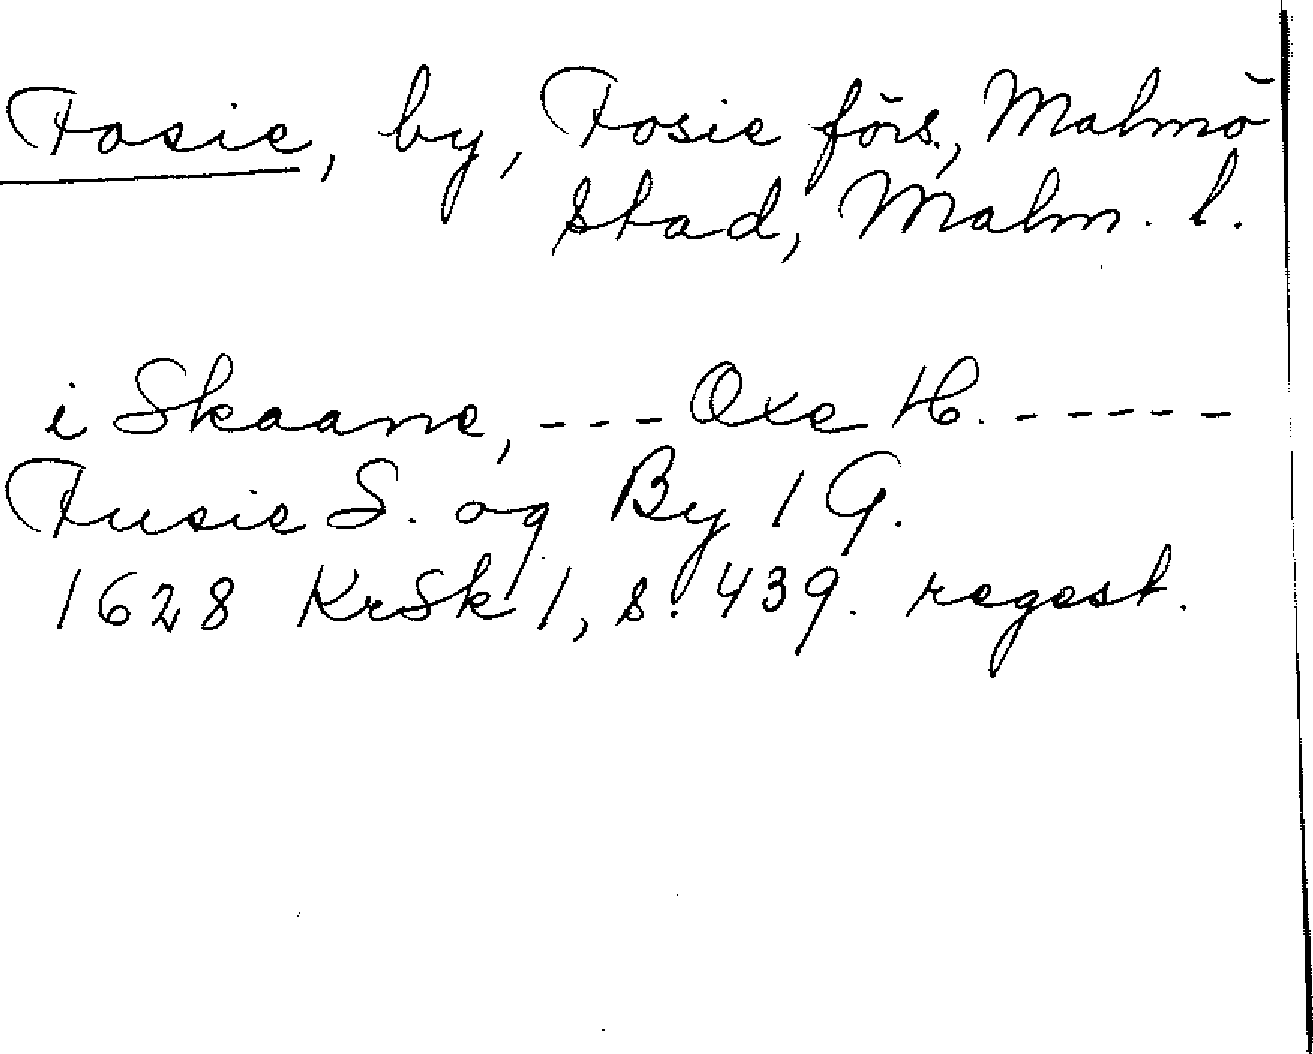 Fosie, by, Fosie förs., Malmö
stad, Malm. l.
i Skaane, --- Oxe H. -----
Fusie S. og By 1 G.
1628 KrSk 1, s. 439. regest.